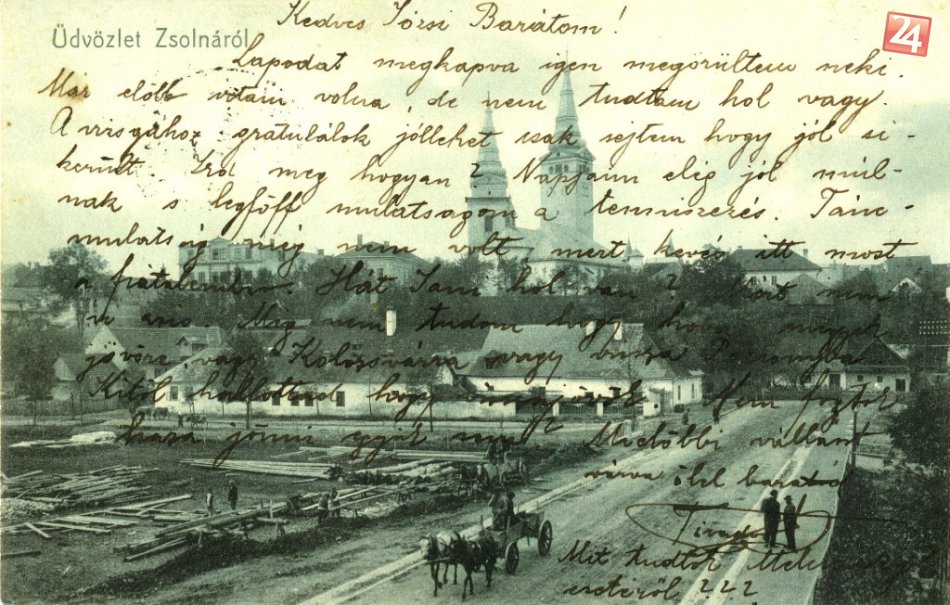 Üdvözlet Zsolnáról
24
Kedves Józsi Barátom!
Lapodat megkapva igen megörültem neki.
Már előbb irtam volna, de nem tudtam hol vagy.
A vizsgához gratulálok jóllehet csak sejtem hogy jól si-
került. Ird meg hogyan? Napjaim elég jól múl-
nak s legfőbb mulatságom a tenniszezés. Tánc-
mulatság még nem volt mert kevés itt most
a fiatalember. Hát Jani hol van? nem
Még nem tudom hogy hova megyek
vagy Kolozsvárra vagy vissza Pozsonyba
Kitől hallottad hogy Nem fogtok
haza jönni Mielőbbi válladat
várva ölel barátod
Tivadar
Mit tudtál
???